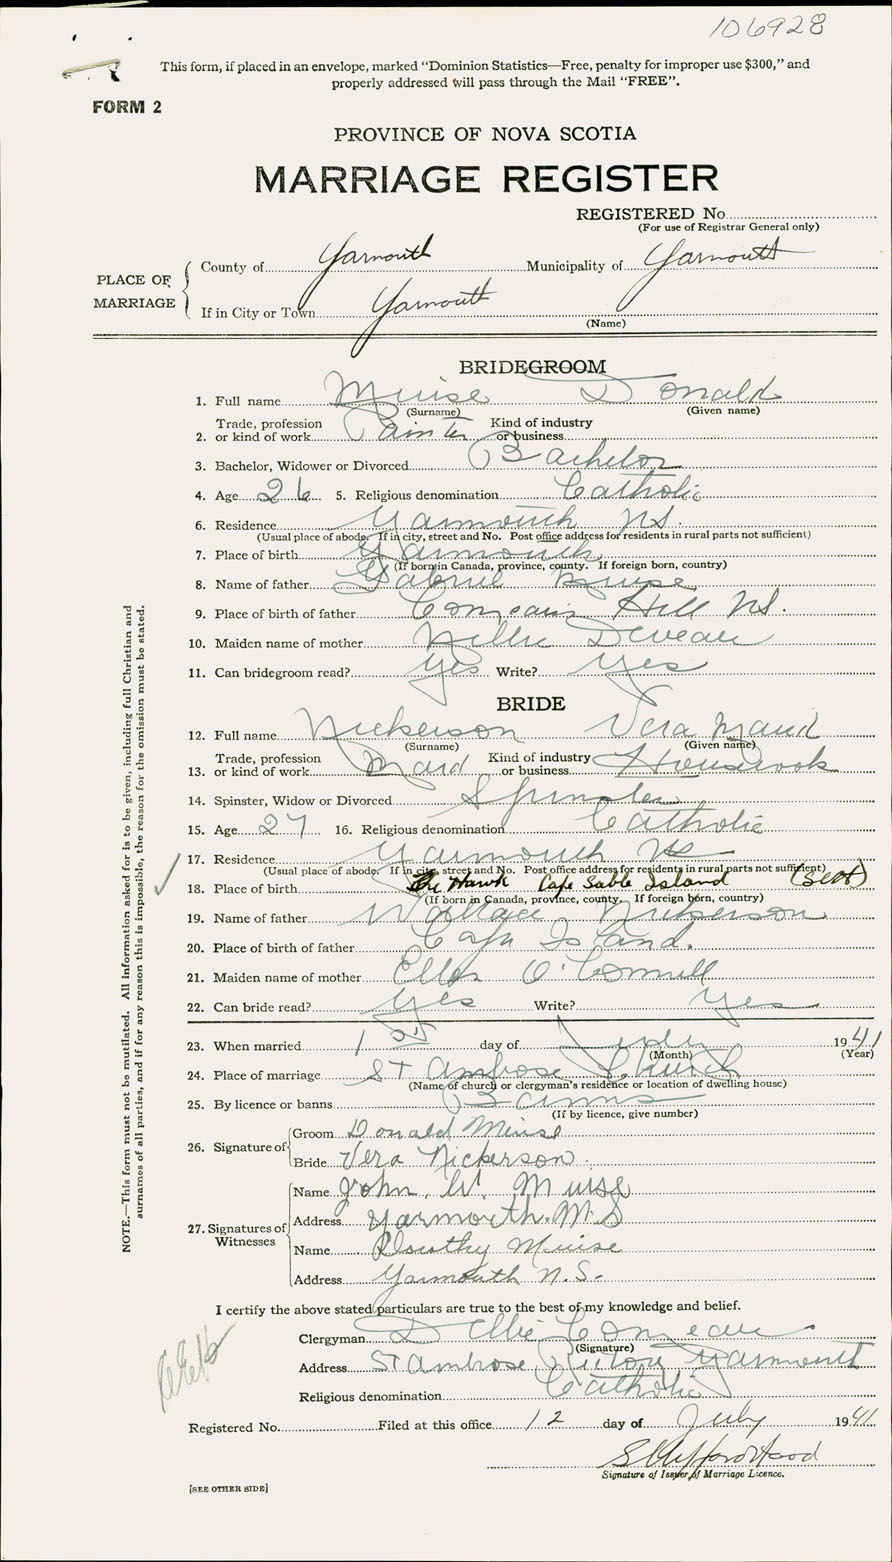 106928
This form, if placed in an envelope, marked "Dominion Statistics—Free, penalty for improper use $300," and
properly addressed will pass through the Mail "FREE".
FORM 2
PROVINCE OF NOVA SCOTIA
MARRIAGE REGISTER
REGISTERED No.
(For use of Registrar General only)
PLACE OF MARRIAGE
County of Yarmouth Municipality of Yarmouth
If in City or Town Yarmouth
(Name)
BRIDEGROOM
1. Full name Muise Donald
(Surname) (Given name)
2. Trade, profession or kind of work Painter Kind of industry or business
3. Bachelor, Widower or Divorced Bachelor
4. Age 26 5. Religious denomination Catholic
6. Residence Yarmouth NS.
(Usual place of abode. If in city, street and No. Post office address for residents in rural parts not sufficient)
7. Place of birth Yarmouth
(If born in Canada, province, county. If foreign born, country)
8. Name of father Gabriel Muise
9. Place of birth of father Comeaus Hill NS.
10. Maiden name of mother Nellie Deveau
11. Can bridegroom read? Yes Write? Yes
BRIDE
12. Full name Nickerson Vera Maud
(Surname) (Given name)
13. Trade, profession or kind of work Maid Kind of industry or business Housework
14. Spinster, Widow or Divorced Spinster
15. Age 27 16. Religious denomination Catholic
17. Residence Yarmouth NS
(Usual place of abode. If in city, street and No. Post office address for residents in rural parts not sufficient)
18. Place of birth The Hawk Cape Sable Island
(If born in Canada, province, county. If foreign born, country)
19. Name of father Wallace Nickerson
20. Place of birth of father Cape Island.
21. Maiden name of mother Ellen O'Connell
22. Can bride read? Yes Write? Yes
23. When married 1 st day of 1941
(Month) (Year)
24. Place of marriage St Ambrose Church
(Name of church or clergyman's residence or location of dwelling house)
25. By licence or banns Banns
(If by licence, give number)
26. Signature of Groom Donald Muise
Bride Vera Nickerson.
27. Signatures of Witnesses Name John W. Muise
Address Yarmouth. N.S
Name Dorothy Muise
Address Yarmouth N.S.
I certify the above stated particulars are true to the best of my knowledge and belief.
Clergyman Comeau
(Signature)
Address St Ambrose Rectory Yarmouth
Religious denomination Catholic
Registered No. Filed at this office 12 day of July 1941
Signature of Issuer of Marriage Licence.
[SEE OTHER SIDE]
NOTE.—This form must not be mutilated. All information asked for is to be given, including full Christian and
surnames of all parties, and if for any reason this is impossible, the reason for the omission must be stated.